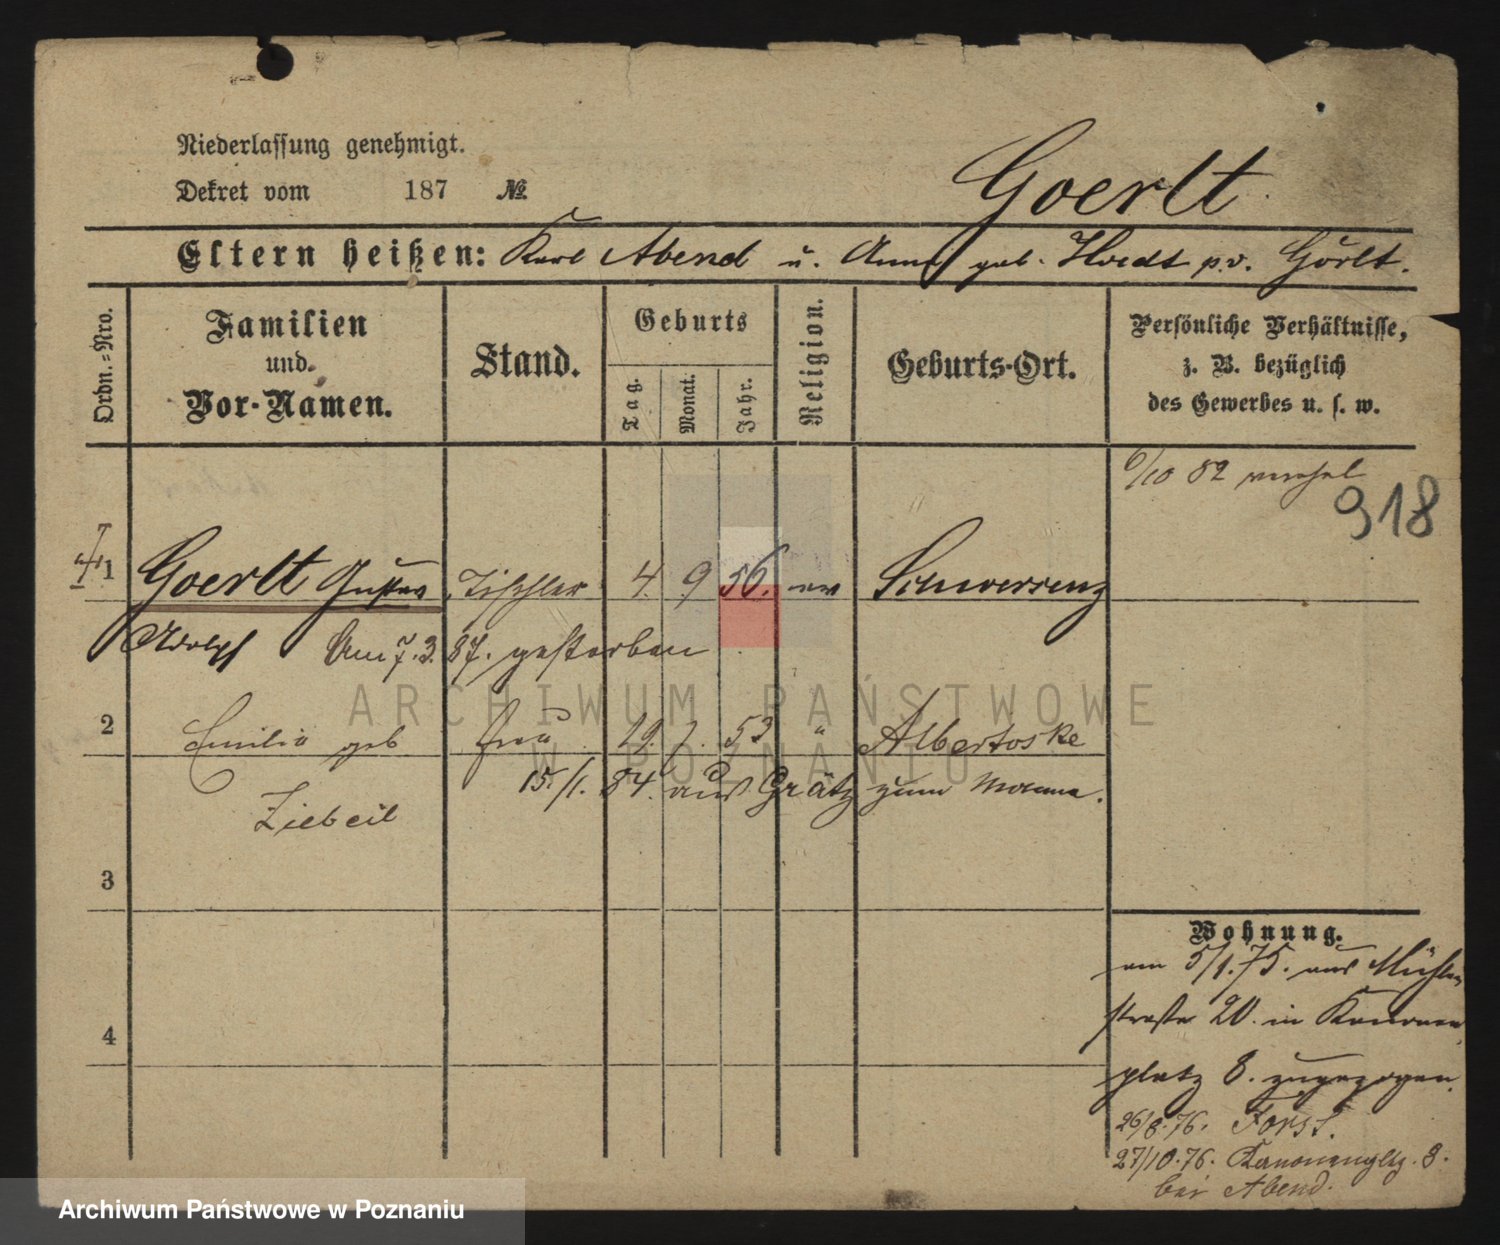 Niederlassung genehmigt.
Dekret vom 187 №
Goerlt
Eltern heißen: Karl Abend u. Anna geb. Hordt p.v. Görlt.
Ordn.=Nro.
Familien
und
Vor-Namen.
Stand.
Geburts
Tag.
Monat.
Jahr.
Religion.
Geburts-Ort.
Persönliche Verhältnisse,
z. B. bezüglich
des Gewerbes u. s. w.
6/10 82
918
1 Goerlt Gustav Tischler 4. 9. 56. ev Schwersenz
Adolph Am 7. 3. 87. gestorben
2 Emilie geb Frau 29. 7. 53 " Albertoske
15./1. 84. aus Grätz zum Manne.
Ziebeil
3
4
Wohnung.
am 5/1. 75. aus Mühlen
straße 20. in Kanonen
platz 8. zugezogen.
26/8. 76. Forst.
27/10. 76. Kanonenpltz. 8.
bei Abend.
ARCHIWUM PAŃSTWOWE
W POZNANIU
Archiwum Państwowe w Poznaniu